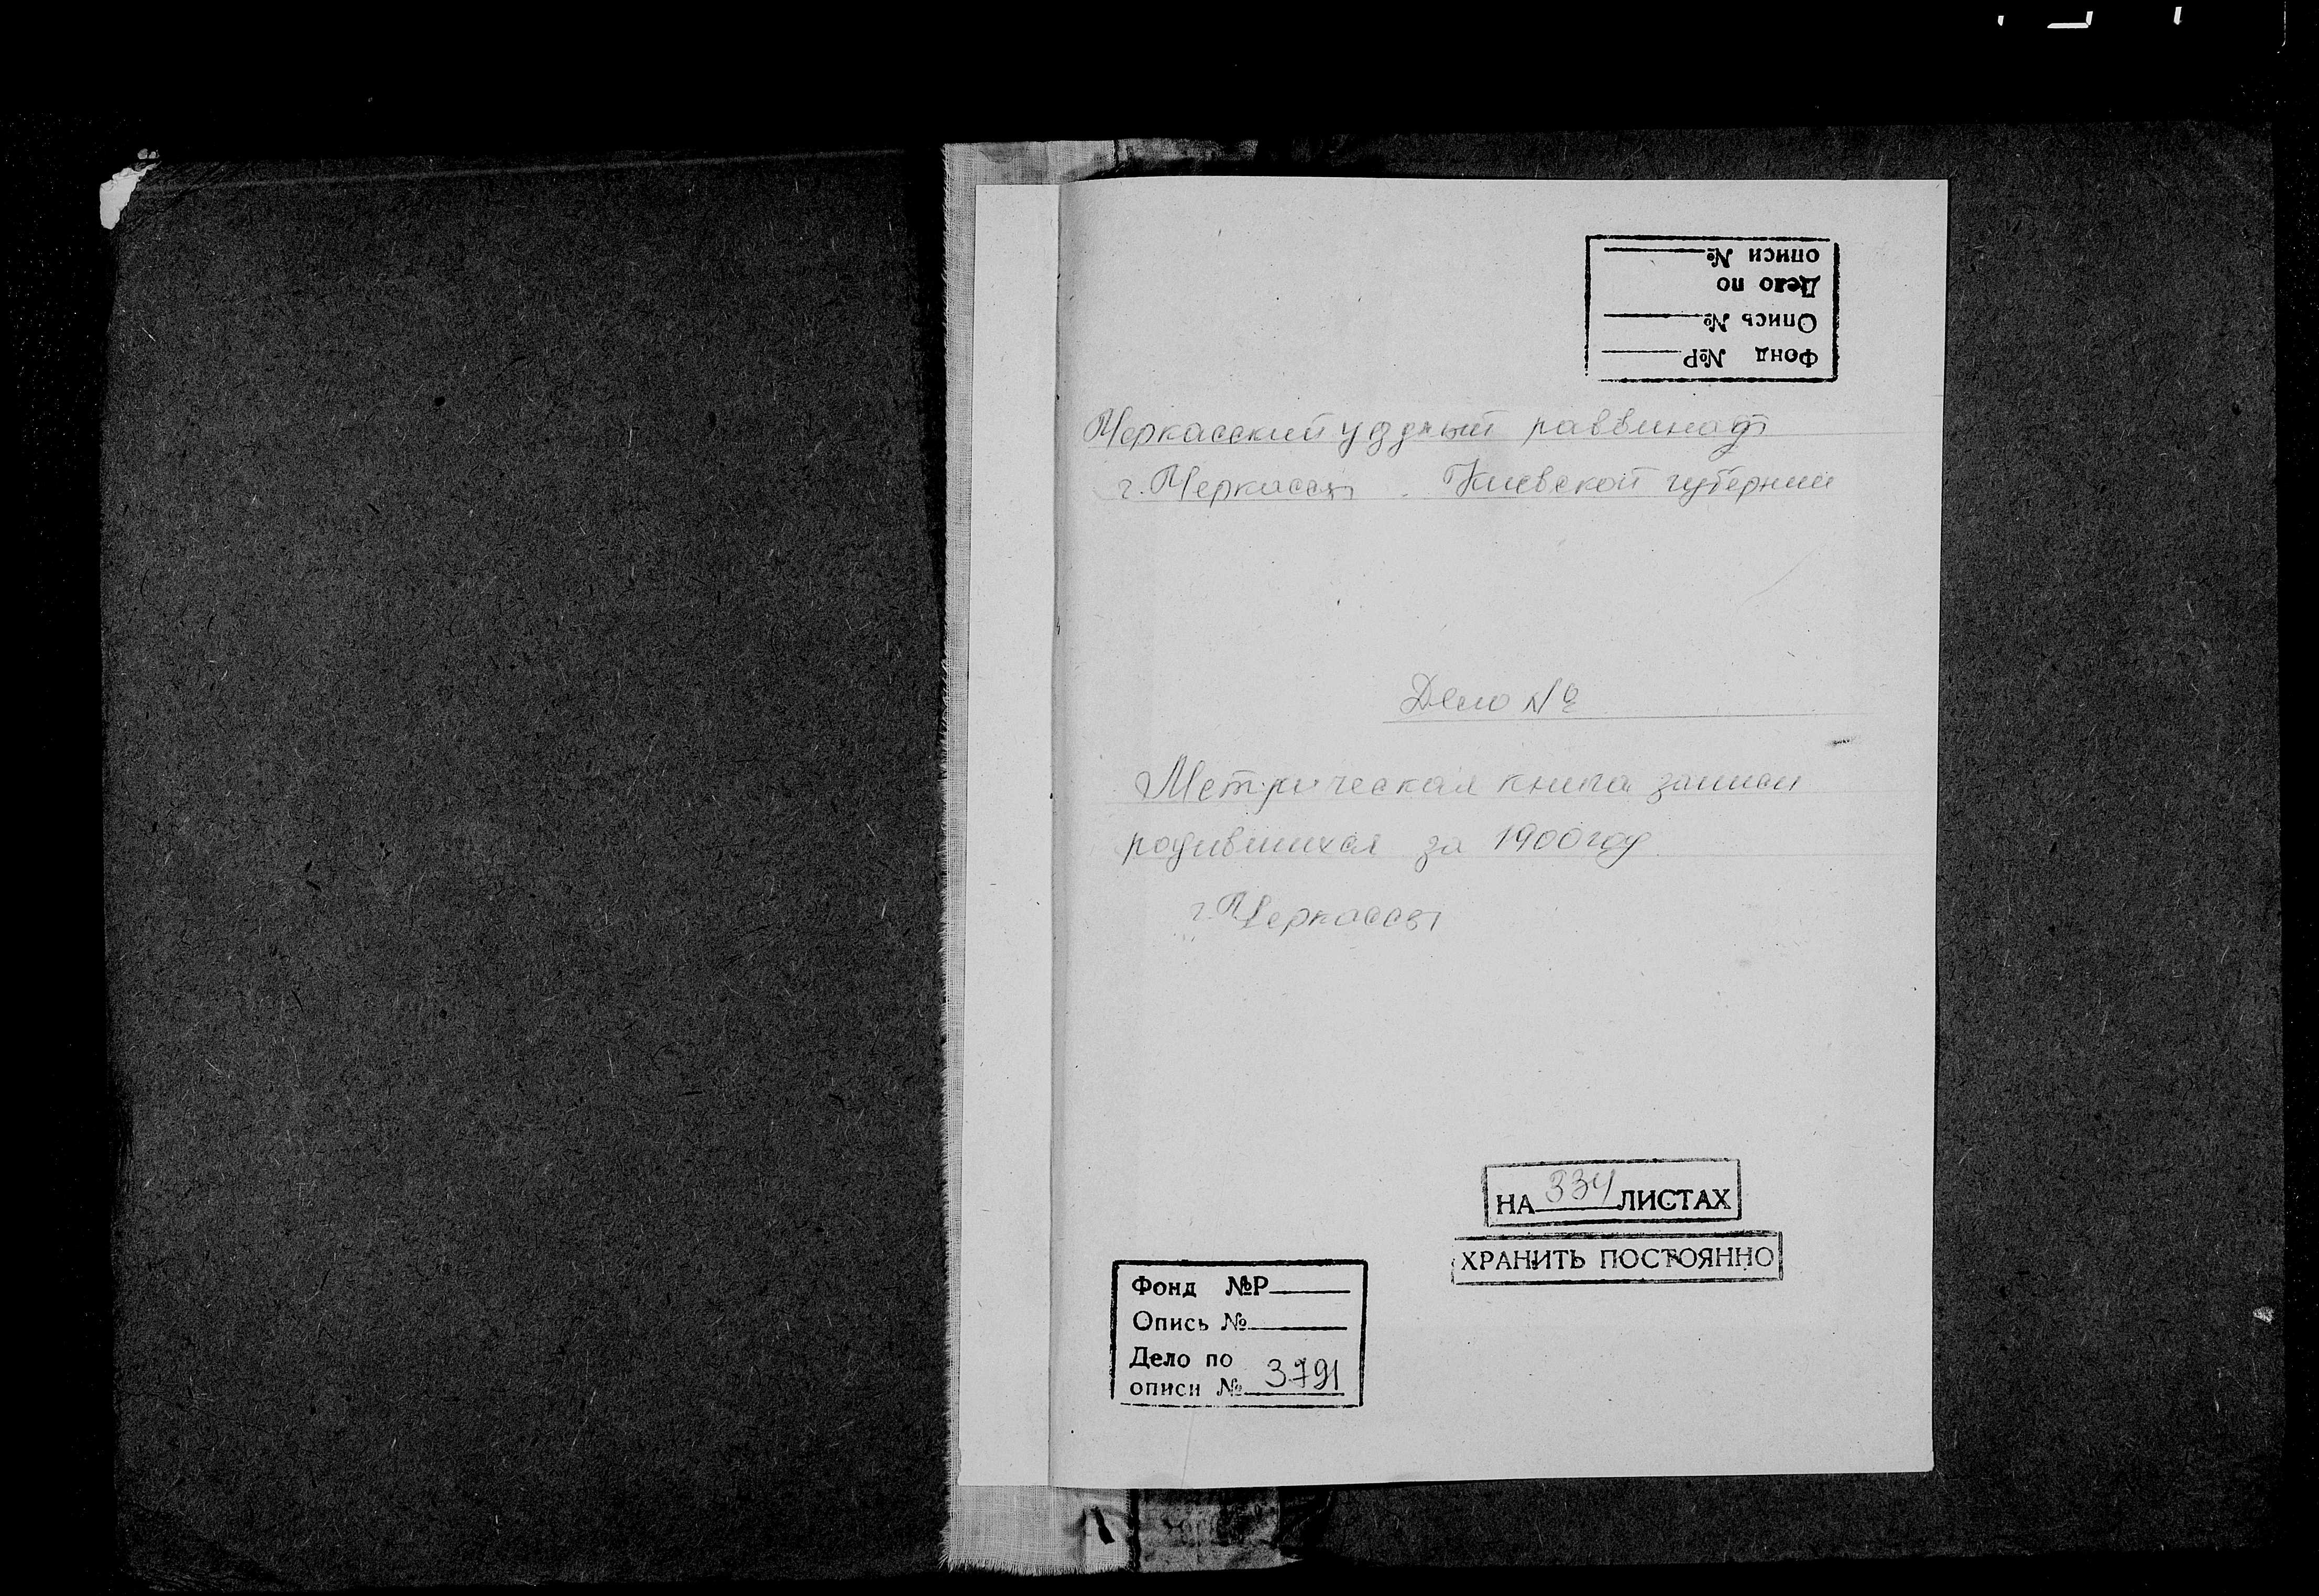 Фонд №Р
Опись №
Дело по
описи №
Черкасский уездный раввинат
г. Черкассы Киевской губернии
Дело №
Метрическая книга записи
родившихся за 1900 год
г. Черкассы
НА 334 ЛИСТАХ
ХРАНИТЬ ПОСТОЯННО
Фонд №Р
Опись №
Дело по
описи № 3791